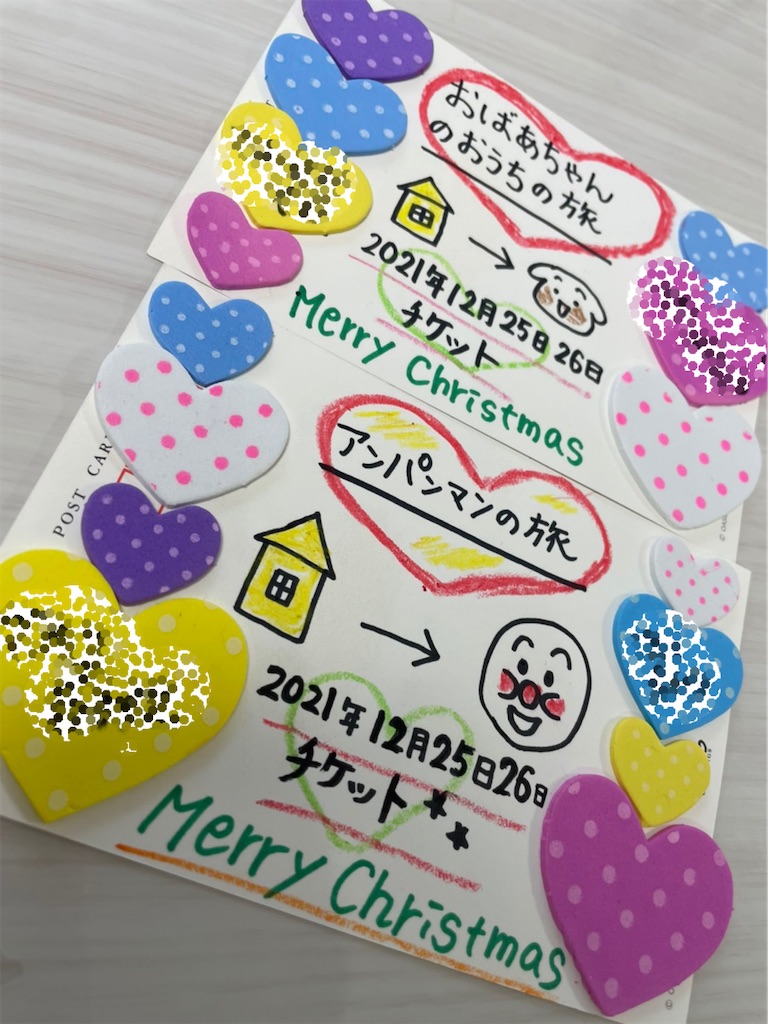 おばあちゃん
のおうちの旅
2021年12月25日26日
チケット
Merry Christmas
POST CAR
アンパンマンの旅
2021年12月25日26日
チケット
Merry Christmas